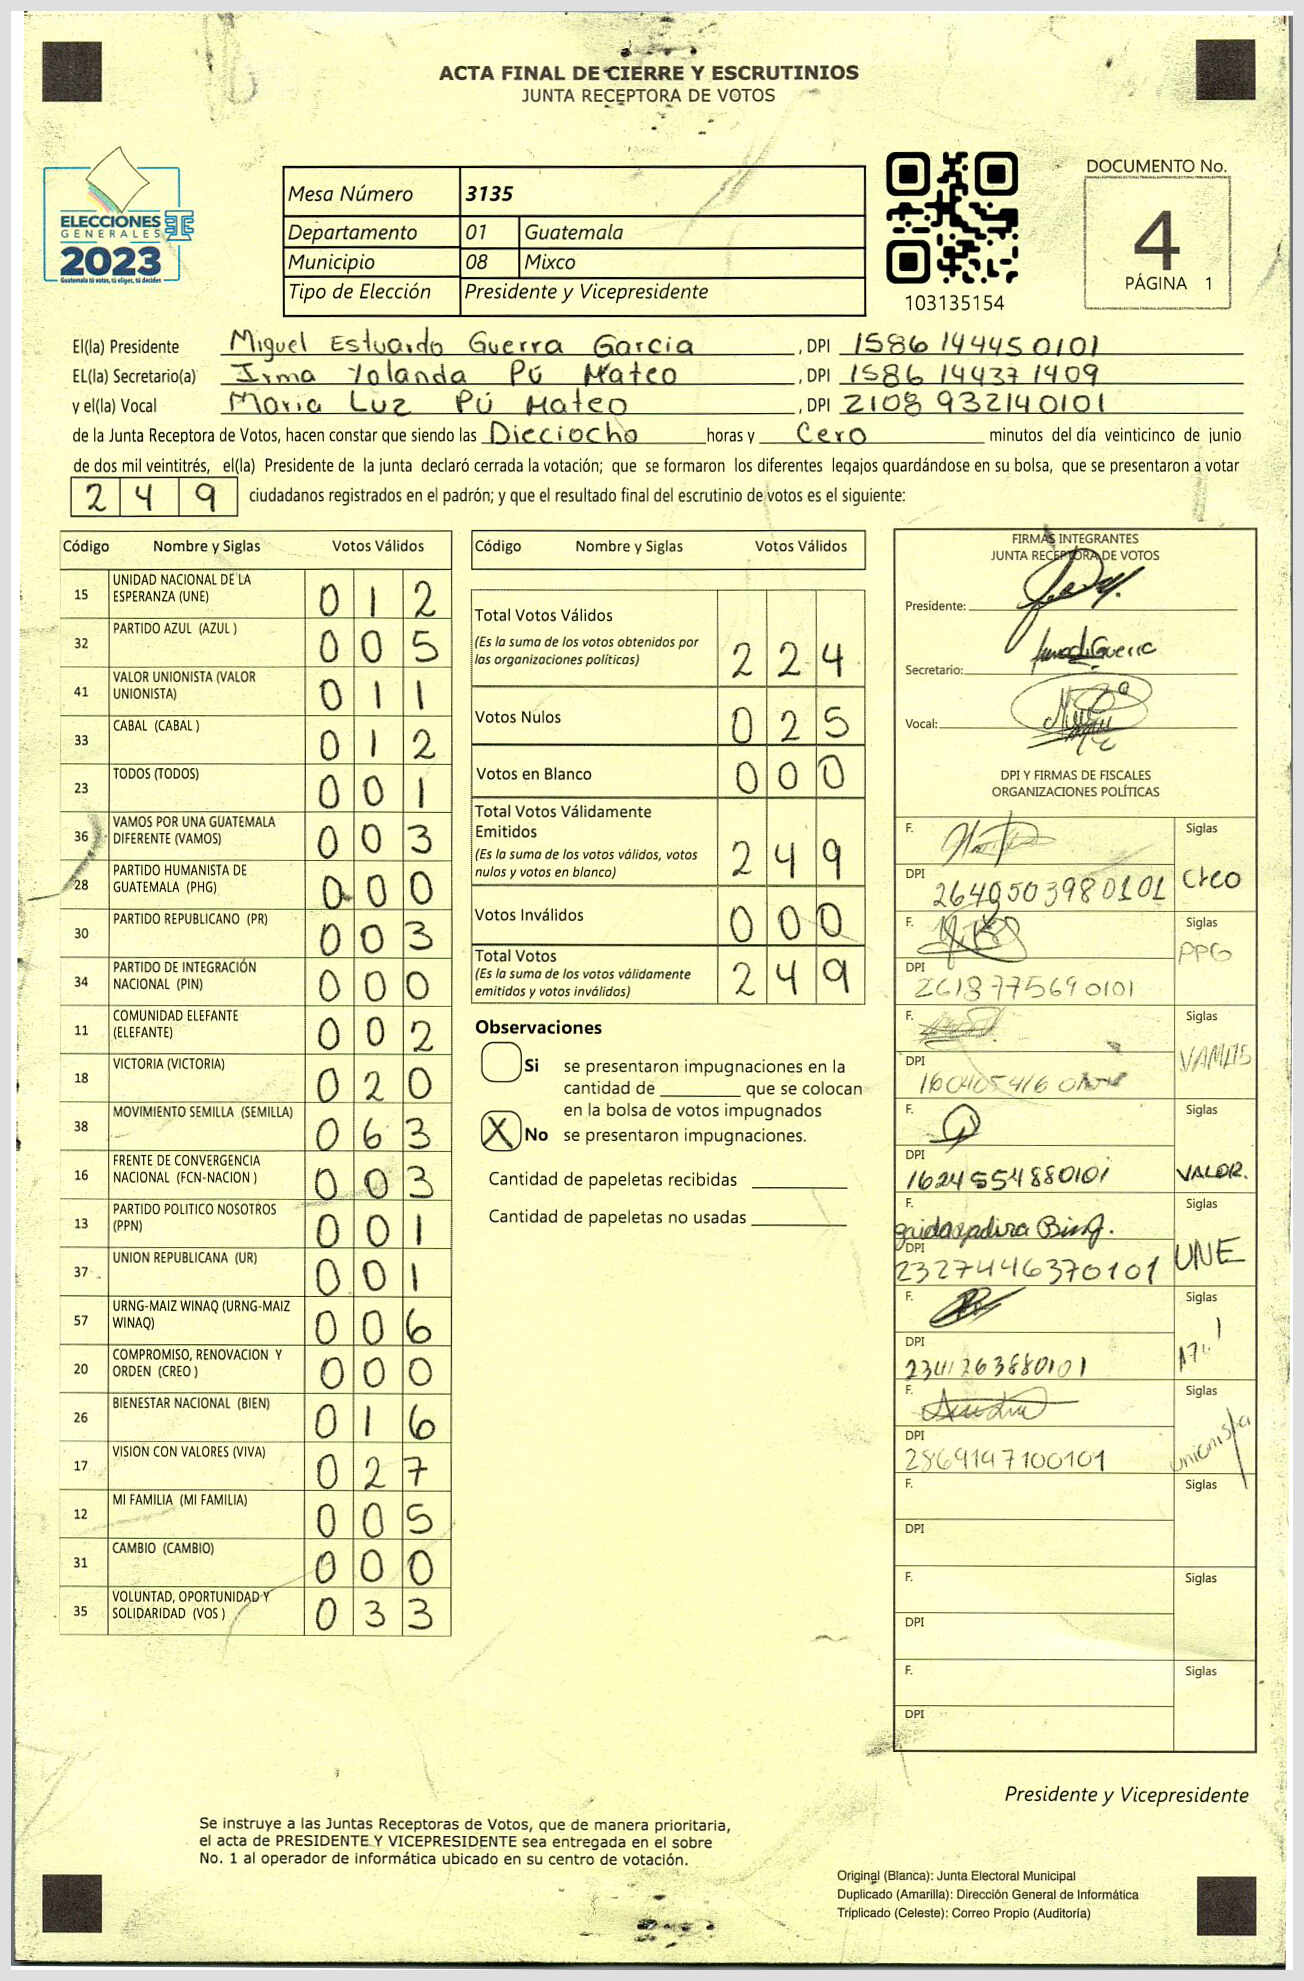 ACTA FINAL DE CIERRE Y ESCRUTINIOS
JUNTA RECEPTORA DE VOTOS
ELECCIONES
GENERALES
2023
Guatemala tú votas, tú eliges, tú decides
Mesa Número 3135
Departamento 01 Guatemala
Municipio 08 Mixco
Tipo de Elección Presidente y Vicepresidente
103135154
DOCUMENTO No.
4
PÁGINA 1
El(la) Presidente Miguel Estuardo Guerra Garcia, DPI 1586 14445 0101
EL(la) Secretario(a) Irma Yolanda Pú Mateo, DPI 1586 14437 1409
y el(la) Vocal Maria Luz Pú Mateo, DPI 2108 93214 0101
de la Junta Receptora de Votos, hacen constar que siendo las Dieciocho horas y Cero minutos del día veinticinco de junio
de dos mil veintitrés, el(la) Presidente de la junta declaró cerrada la votación; que se formaron los diferentes legajos guardándose en su bolsa, que se presentaron a votar
2 4 9 ciudadanos registrados en el padrón; y que el resultado final del escrutinio de votos es el siguiente:
Código Nombre y Siglas Votos Válidos
15 UNIDAD NACIONAL DE LA ESPERANZA (UNE) 0 1 2
32 PARTIDO AZUL (AZUL ) 0 0 5
41 VALOR UNIONISTA (VALOR UNIONISTA) 0 1 1
33 CABAL (CABAL ) 0 1 2
23 TODOS (TODOS) 0 0 1
36 VAMOS POR UNA GUATEMALA DIFERENTE (VAMOS) 0 0 3
28 PARTIDO HUMANISTA DE GUATEMALA (PHG) 0 0 0
30 PARTIDO REPUBLICANO (PR) 0 0 3
34 PARTIDO DE INTEGRACIÓN NACIONAL (PIN) 0 0 0
11 COMUNIDAD ELEFANTE (ELEFANTE) 0 0 2
18 VICTORIA (VICTORIA) 0 2 0
38 MOVIMIENTO SEMILLA (SEMILLA) 0 6 3
16 FRENTE DE CONVERGENCIA NACIONAL (FCN-NACION ) 0 0 3
13 PARTIDO POLITICO NOSOTROS (PPN) 0 0 1
37 UNION REPUBLICANA (UR) 0 0 1
57 URNG-MAIZ WINAQ (URNG-MAIZ WINAQ) 0 0 6
20 COMPROMISO, RENOVACION Y ORDEN (CREO ) 0 0 0
26 BIENESTAR NACIONAL (BIEN) 0 1 6
17 VISION CON VALORES (VIVA) 0 2 7
12 MI FAMILIA (MI FAMILIA) 0 0 5
31 CAMBIO (CAMBIO) 0 0 0
35 VOLUNTAD, OPORTUNIDAD Y SOLIDARIDAD (VOS ) 0 3 3
Código Nombre y Siglas Votos Válidos
Total Votos Válidos
(Es la suma de los votos obtenidos por
las organizaciones políticas) 2 2 4
Votos Nulos 0 2 5
Votos en Blanco 0 0 0
Total Votos Válidamente
Emitidos
(Es la suma de los votos válidos, votos
nulos y votos en blanco) 2 4 9
Votos Inválidos 0 0 0
Total Votos
(Es la suma de los votos válidamente
emitidos y votos inválidos) 2 4 9
Observaciones
Si se presentaron impugnaciones en la
cantidad de ________ que se colocan
en la bolsa de votos impugnados
X No se presentaron impugnaciones.
Cantidad de papeletas recibidas
Cantidad de papeletas no usadas
FIRMAS INTEGRANTES
JUNTA RECEPTORA DE VOTOS
Presidente:
Secretario: Guerra
Vocal:
DPI Y FIRMAS DE FISCALES
ORGANIZACIONES POLÍTICAS
F. Siglas
DPI 2640503980101 Creo
F. Siglas
DPI 2618775690101 PPG
F. Siglas
DPI VAMOS
F. Siglas
DPI 1624554880101 VALOR.
F. Siglas
DPI 2327446370101 UNE
F. Siglas
DPI 2341263880101
F. Siglas
DPI 2869147100101 unionista
F. Siglas
DPI
F. Siglas
DPI
F. Siglas
DPI
Presidente y Vicepresidente
Se instruye a las Juntas Receptoras de Votos, que de manera prioritaria,
el acta de PRESIDENTE Y VICEPRESIDENTE sea entregada en el sobre
No. 1 al operador de informática ubicado en su centro de votación.
Original (Blanca): Junta Electoral Municipal
Duplicado (Amarilla): Dirección General de Informática
Triplicado (Celeste): Correo Propio (Auditoría)